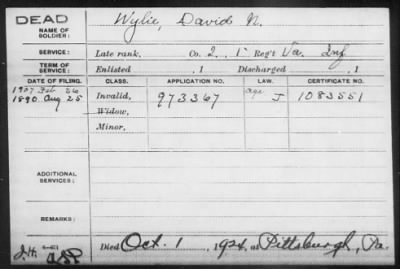 DEAD
NAME OF SOLDIER: Wylie, David N.
SERVICE: Late rank, Co. 2, 1" Reg't Va. Inf
TERM OF SERVICE: Enlisted , 1 Discharged , 1
DATE OF FILING. CLASS. APPLICATION NO. LAW. CERTIFICATE NO.
1907 Feb 26 age
1890 Aug 25 Invalid, 973367 J 1083551
Widow,
Minor,
ADDITIONAL SERVICES:
REMARKS:
Died Oct. 1, 1924, at Pittsburgh, Pa.